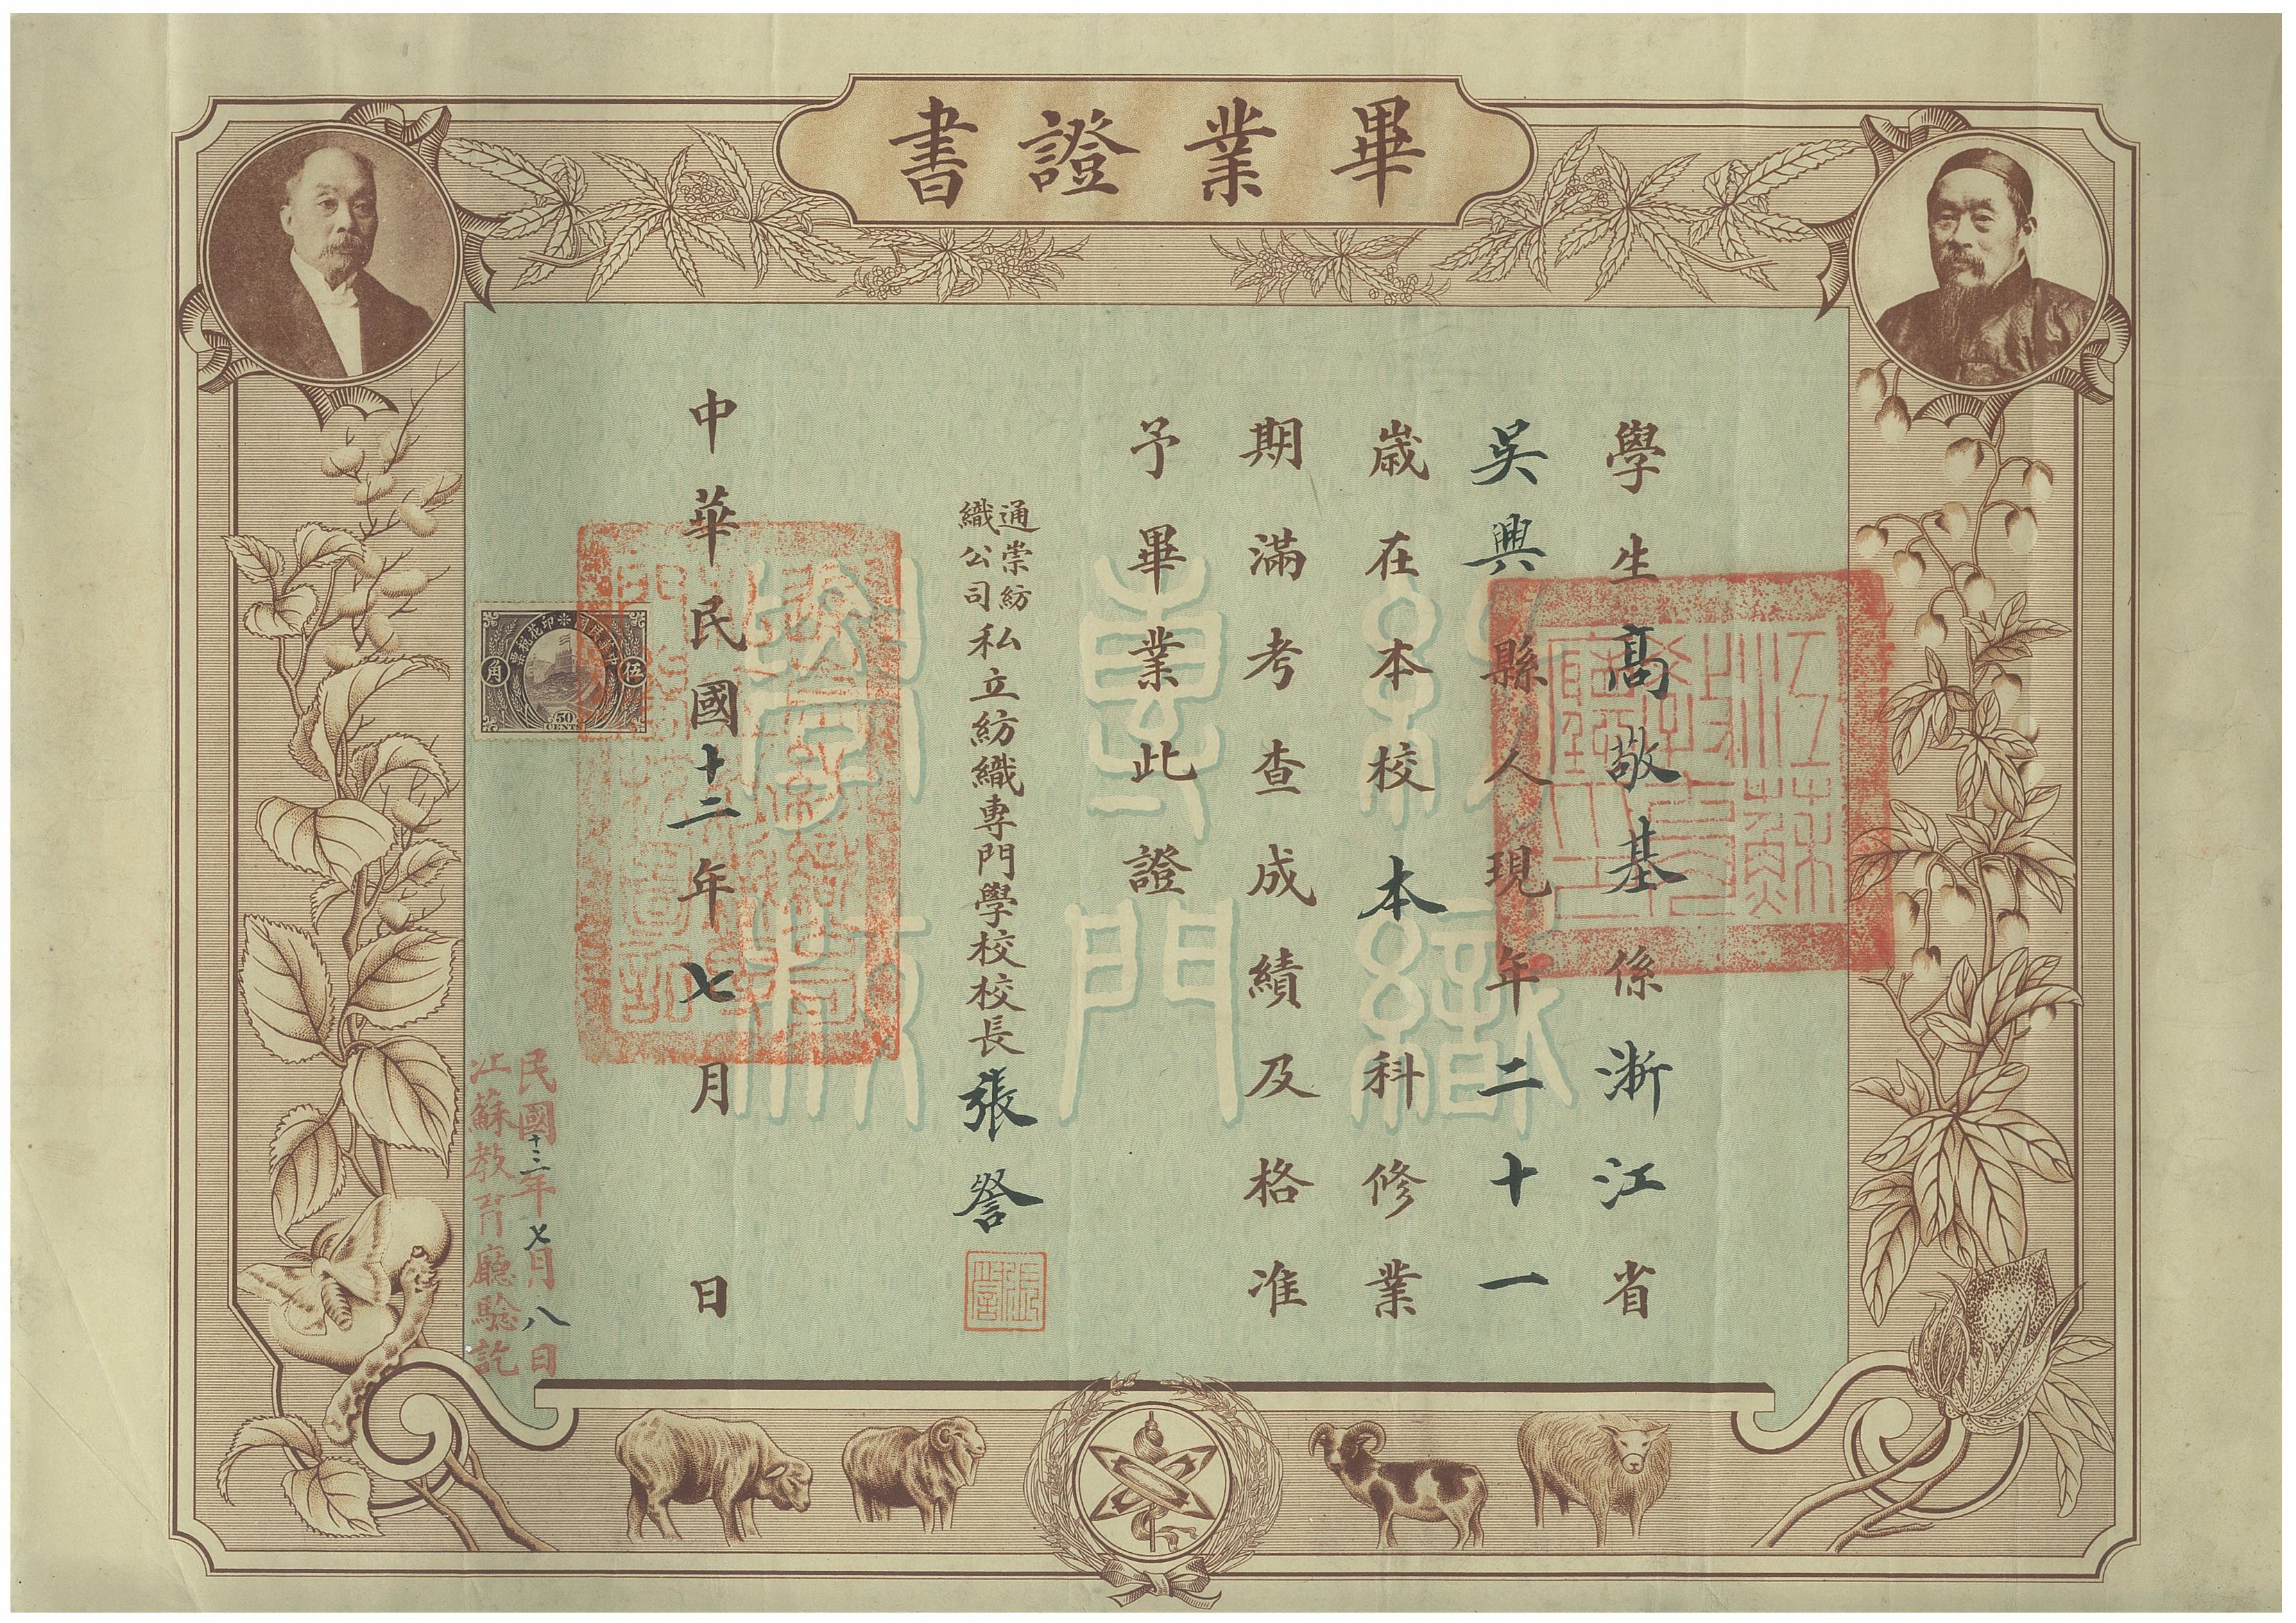 畢業證書
學生高敬基係浙江省
吳興縣人現年二十一
歲在本校本科修業
期滿考查成績及格准
予畢業此證
通崇紡織公司私立紡織專門學校校長張詧
中華民國十二年七月日
民國十三年七月八日
江蘇教育廳驗訖
紡織專門學校
江蘇教育廳之印
張詧
中華民國印花稅票
伍角
50
CENTS